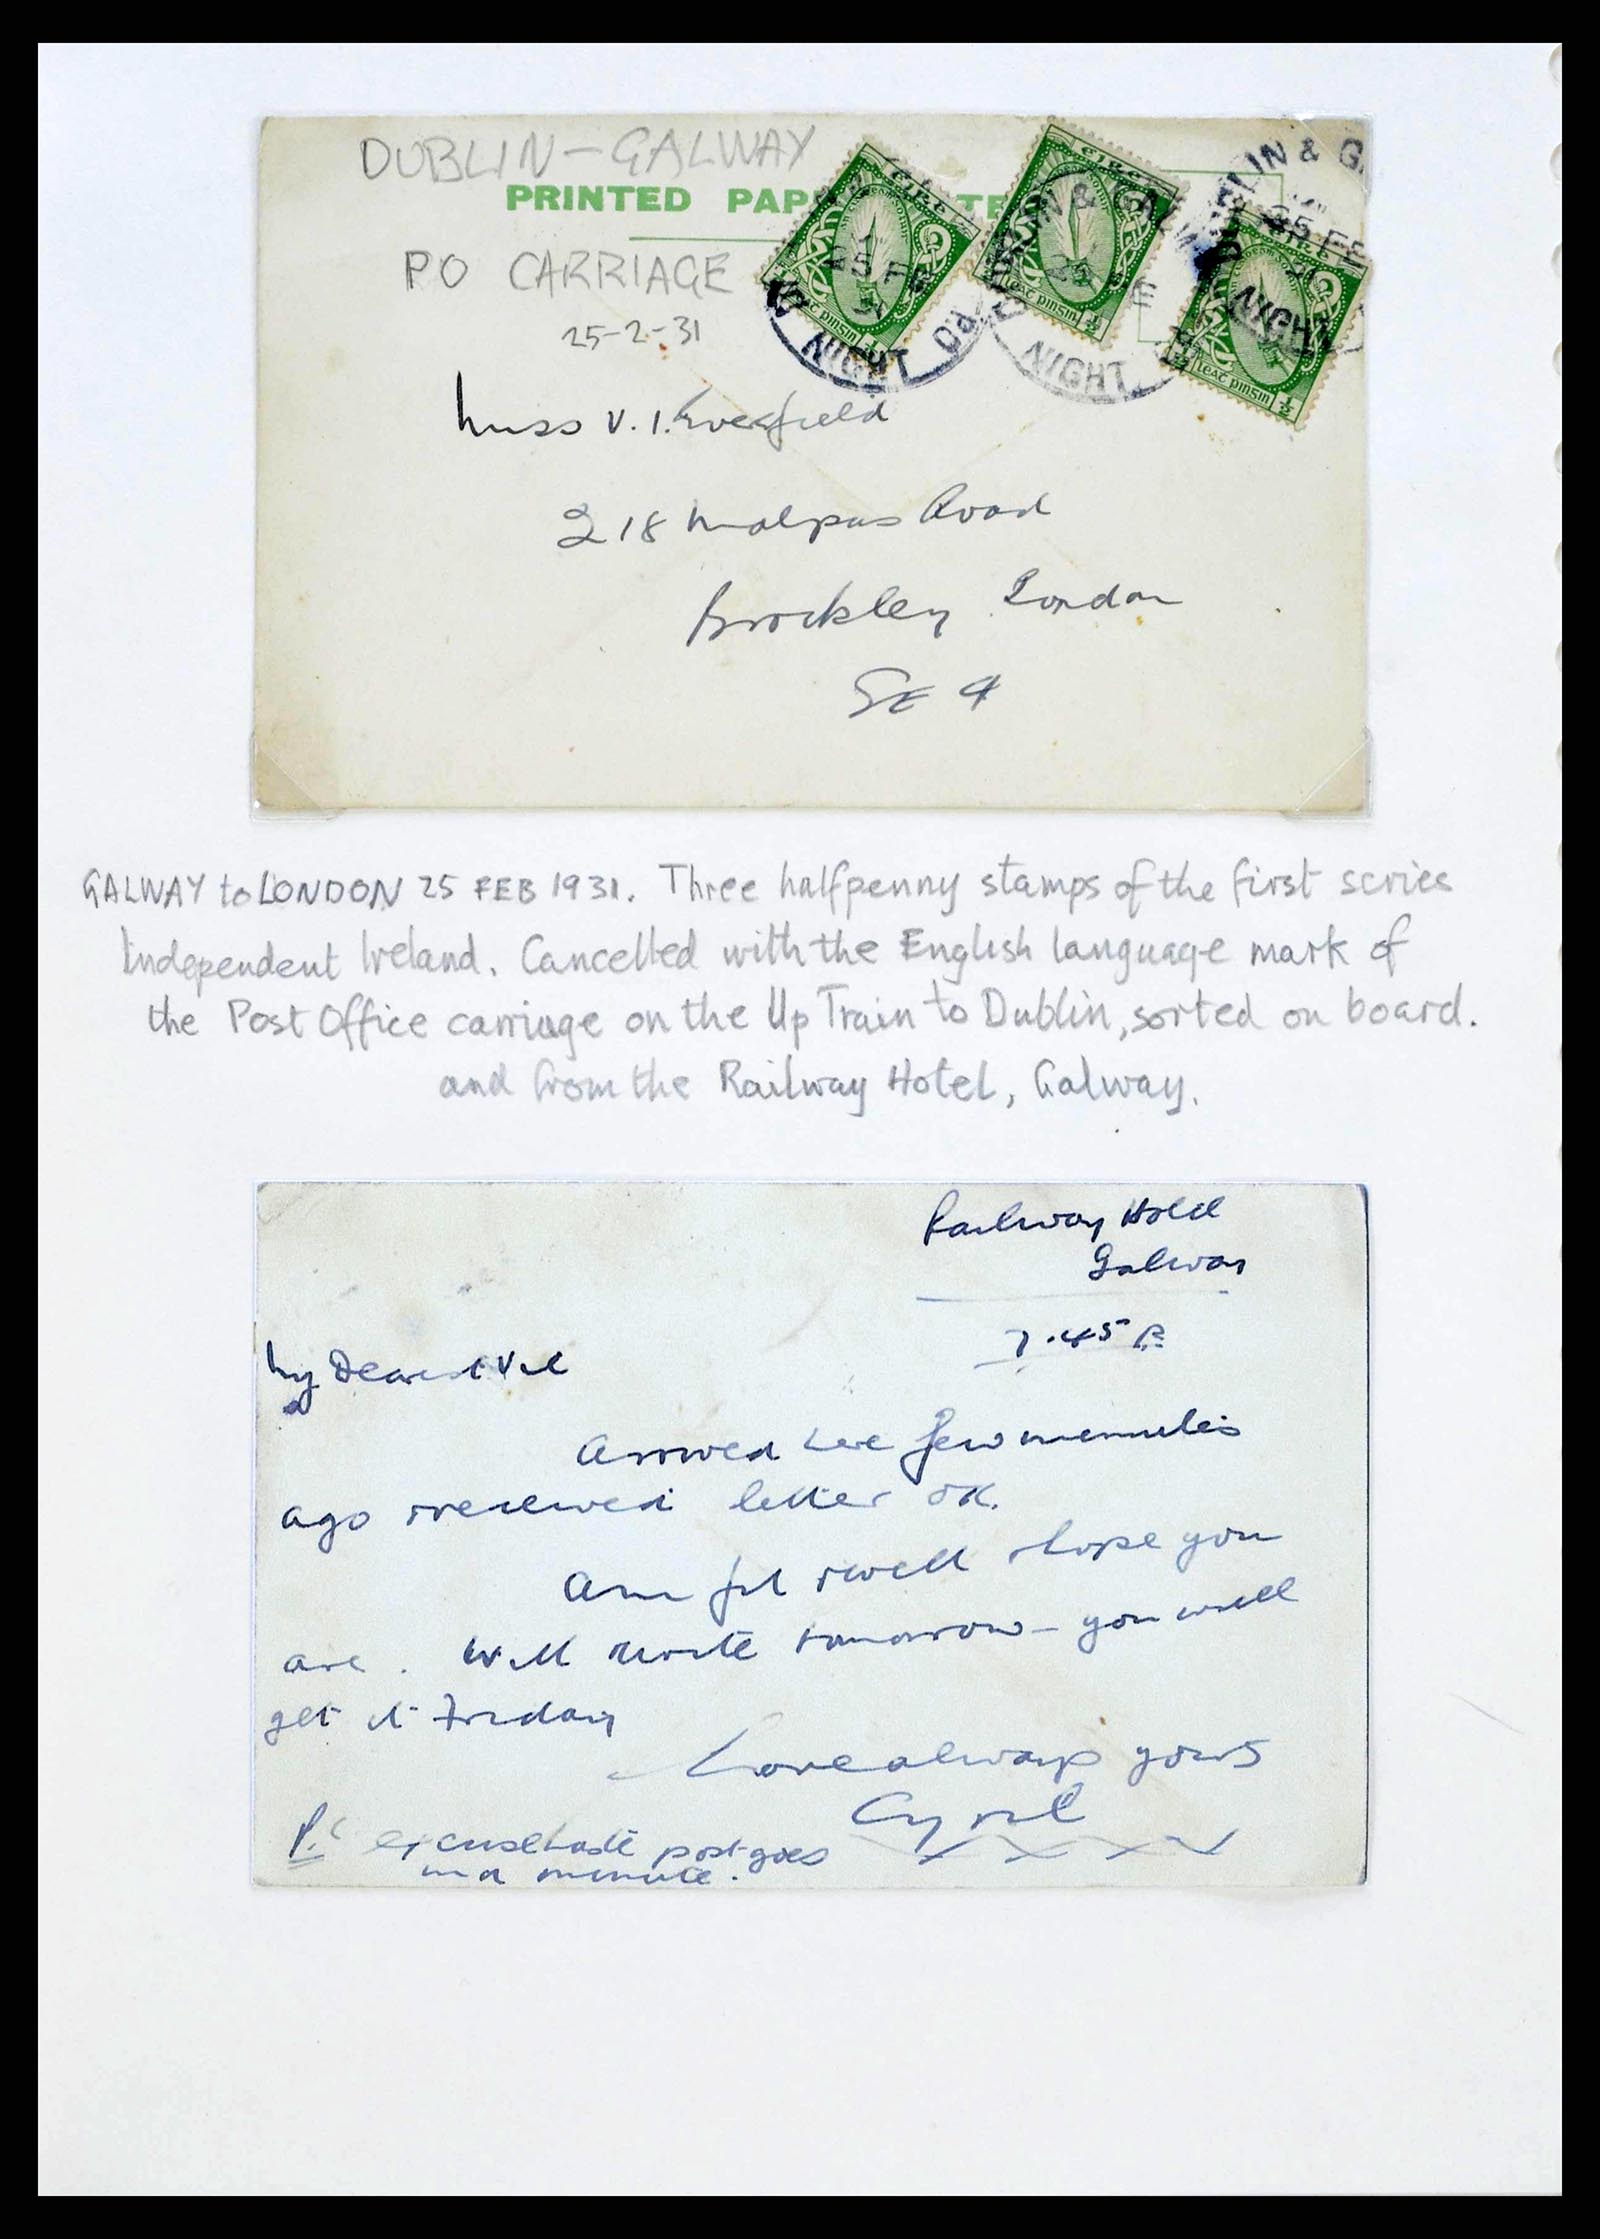 DUBLIN - GALWAY
PRINTED PAP TE
PO CARRIAGE
25-2-31
éire
éire
éire
leat pinsin ½
leat pinsin ½
leat pinsin ½
25 FE
31
NIGHT
LIN & GAL
25 FE
NIGHT
LIN & GA
25 FE
31
NIGHT
Miss V. I. Everfield
218 Malpas Road
Brockley London
SE 4
GALWAY to LONDON 25 FEB 1931. Three halfpenny stamps of the first series
Independent Ireland. Cancelled with the English language mark of
the Post Office carriage on the Up Train to Dublin, sorted on board.
and from the Railway Hotel, Galway.
Railway Hotel
Galway
7.45 P.
My Dearest Val
Arrived here few minutes
ago & received letter OK.
Am fit & well & hope you
are. Will write tomorrow - you will
get it Friday
Love always yours
Cyril
P.S excuse haste post goes
in a minute.